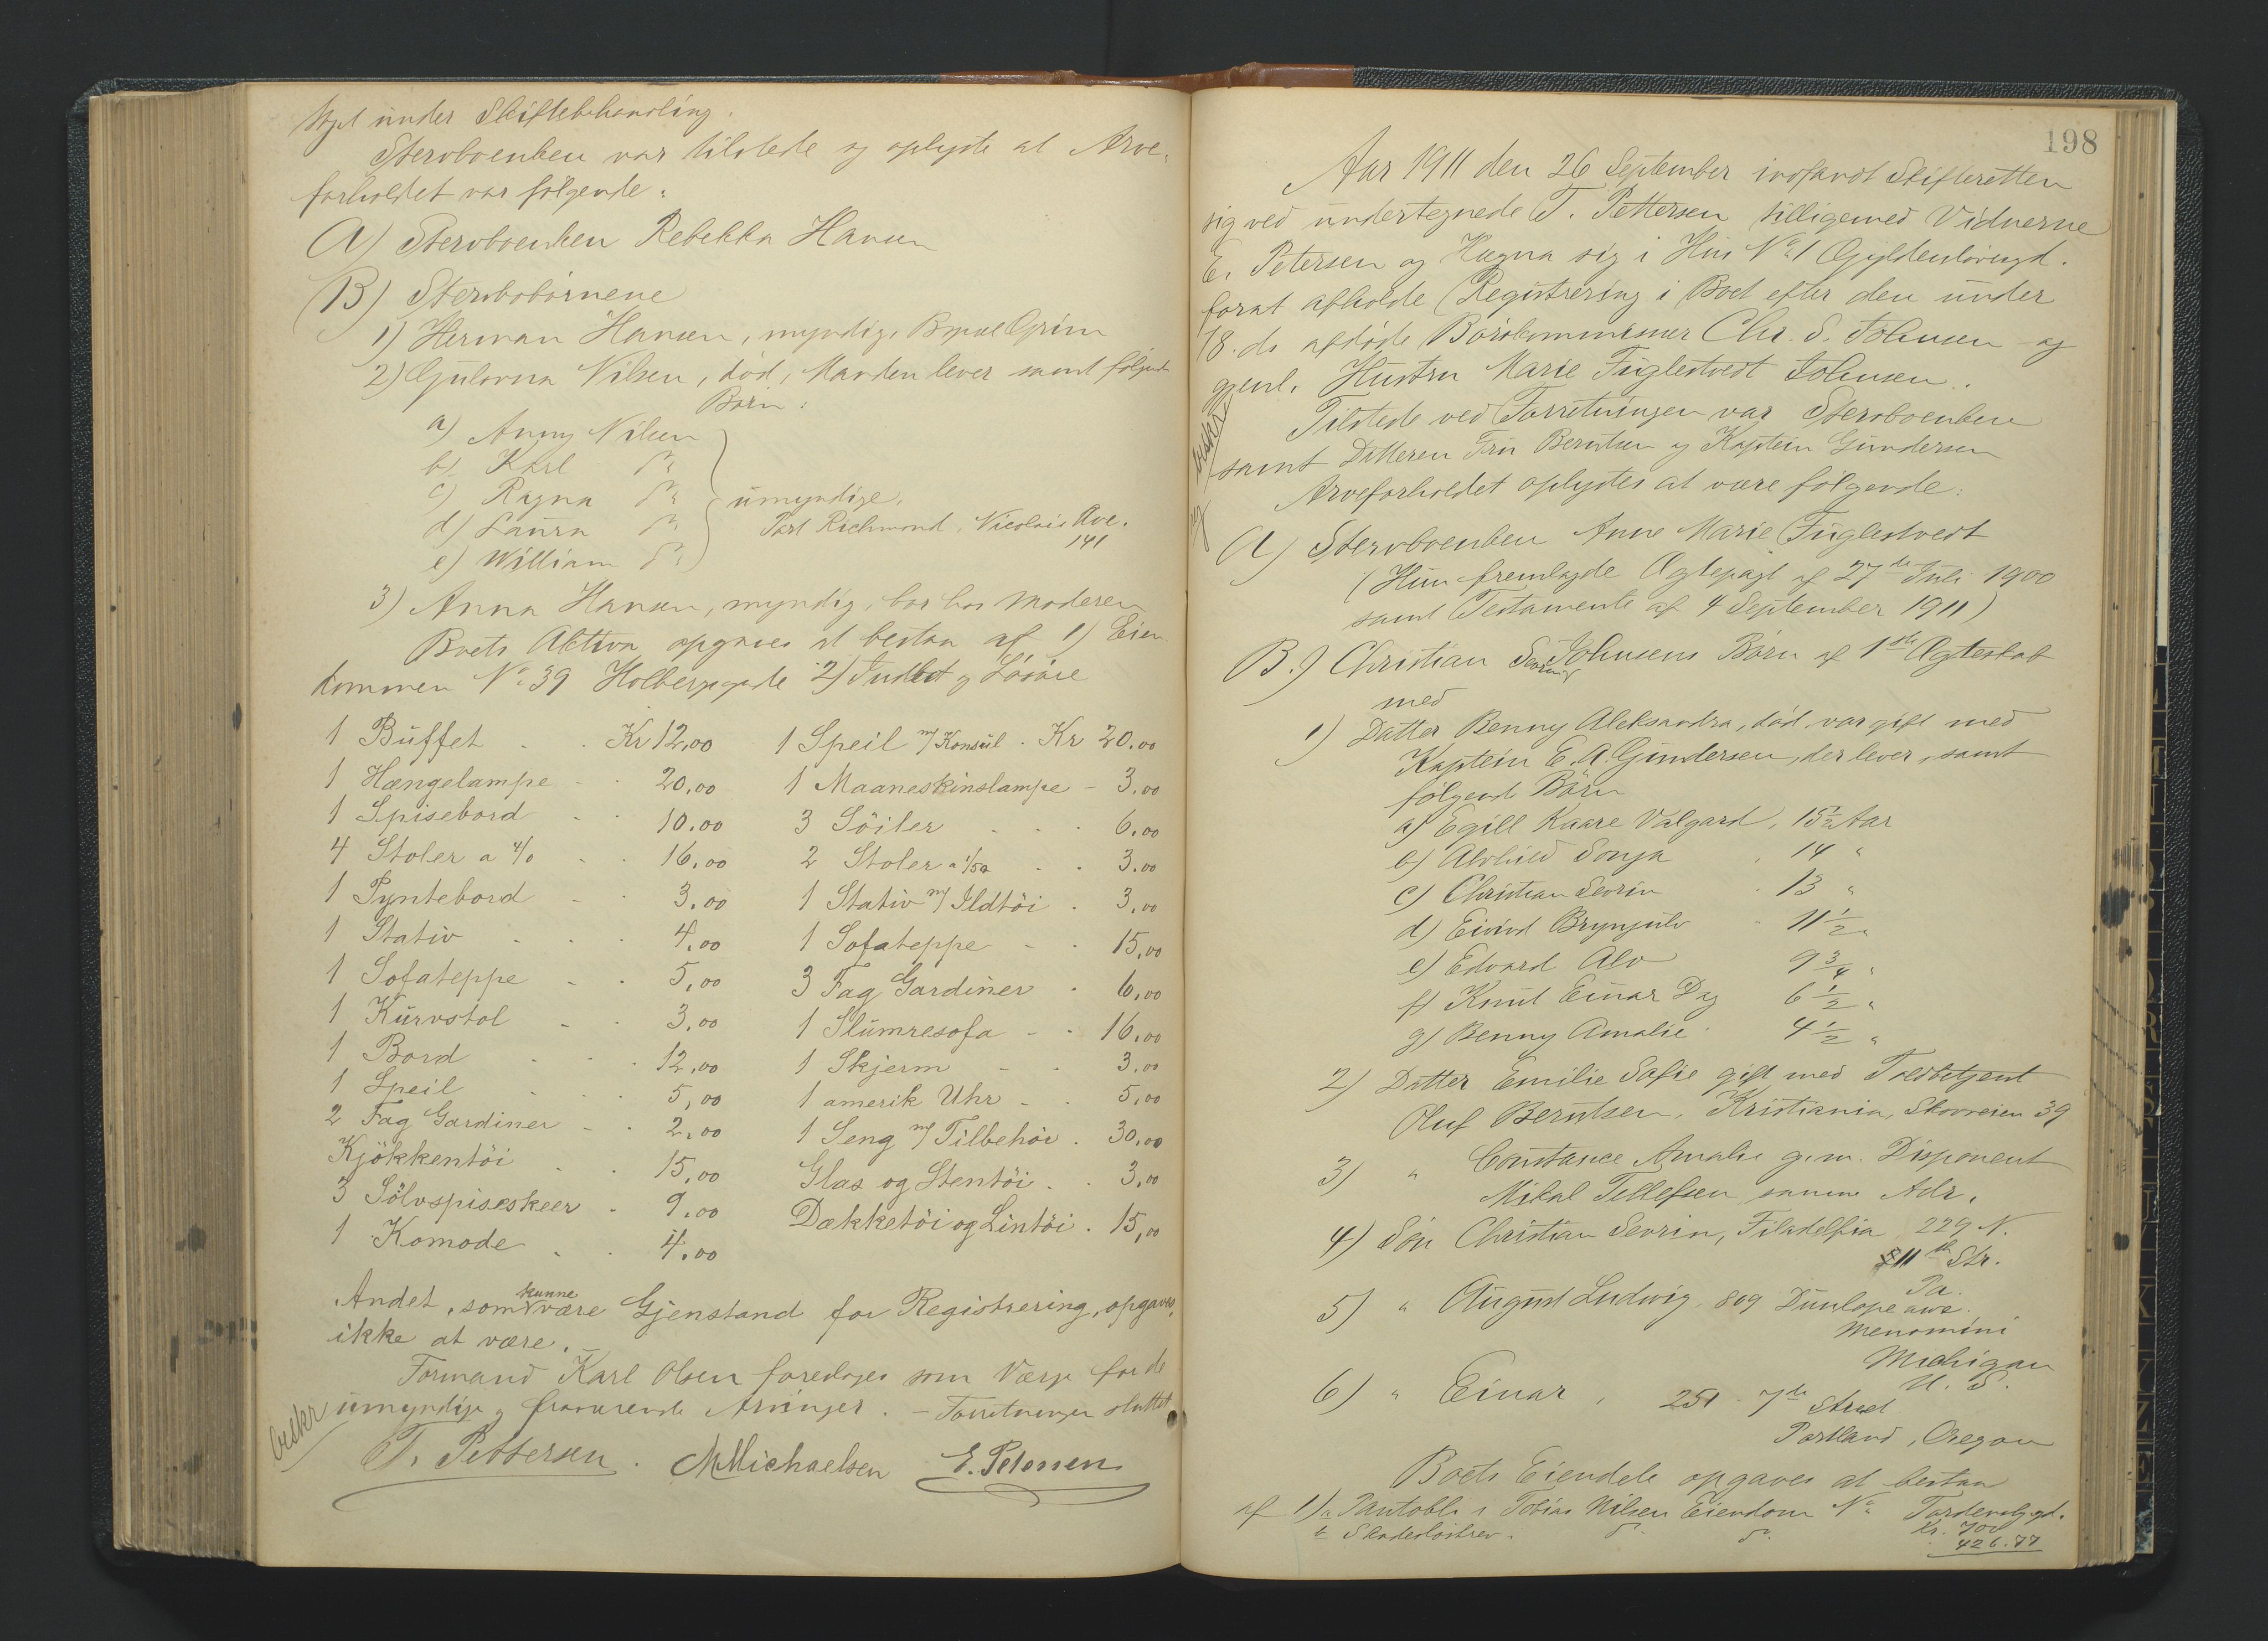 taget under Skiftebehandling.
Stervboenken var tilstede og oplyste at Arve-
forholdet var følgende:
A) Stervboenken Rebekka Hansen
B) Stervbobørnene
1) Herman Hansen, myndig, Grim
2) Gulovna Nilsen, død, Manden lever samt følgende
Børn:
a) Anny Nilsen
b) Karl do
c) Ragna do umyndige,
d) Laura do Port Richmond, Nicolais Ave.
141
e) William do
3) Anna Hansen, myndig, bor hos Moderen
Boets Aktiva opgaves at bestaa af 1) Eien
dommen No 39 Holbergsgade 2) Indbo og Løsøre
1 Büffet Kr 12,00 1 Speil m/Konsül Kr 20.00
1 Hængelampe 20,00 1 Maaneskinslampe 3,00
1 Spisebord 10.00 3 Söiler 6,00
4 Stoler a 4/0 16,00 2 Stoler a 1/50 3.00
1 Pyntebord 3.00 1 Stativ m/ Ildtöi 3,00
1 Stativ 4,00 1 Sofateppe 15,00
1 Sofateppe 5,00 3 Fag Gardiner 6,00
1 Kürvstol 3.00 1 Slümresofa 16,00
1 Bord 12,00 1 Skjerm 3,00
1 Speil 5,00 1 amerik Uhr 5,00
2 Fag Gardiner 2,00 1 Seng m/ Tilbehör 30,00
Kjökkentöi 15,00 Glas og Stentöi 3,00
3 Sölvspiseskeer 9.00 Dækketöi og Lintöi 15,00
1 Komode 4.00
Andet, som kunne være Gjenstand for Registrering, opgaves
ikke at være.
Formand Karl Olsen foresloges som Værge for de
umyndige og fraværende Arvinger. – Forretningen sluttet
beskr
T. Pettersen. M Michaelsen E. Petersen
198
Aar 1911 den 26 September indfandt Skifteretten
sig ved undertegnede T. Pettersen tilligemed Vidnerne
E. Petersen og Hagna sig i Hus No 1 Gyldenløvesgd.
forat afholde Registrering i Boet efter den under
18. ds afdøde Chr. S. Johnsen og
gjenl. Hustru Marie Fuglestvedt Johnsen.
Tilstede ved Forretningen var Stervboenken
beskr
samt Datteren Fru Berntsen og Kaptein Gundersen
Arveforholdet oplystes at være følgende:
A) Stervboenken Anne Marie Fuglestvedt
(Hun fremlagde Ægtepagt af 27de Juli 1900
samt Testamente af 4 September 1911)
B.) Christian Sevrin Johnsens Børn af 1ste Ægteskab
med
1) Datter Benny Aleksandra, død, var gift med
Kaptein E. A. Gundersen, der lever, samt
følgende Børn
a) Egill Kaare Valgard, 15 1/2 Aar
b) Alvhild Sonja 14 "
c) Christian Sevrin 13 "
d) Eivind Brynjulv 11 1/2 "
e) Edvard Alv 9 3/4 "
f) Knut Einar Dag 6 1/2 "
g) Benny Amalie 4 1/2 "
2) Datter Emilie Sofie gift med Toldbetjent
Oluf Berntsen, Kristiania, Skovveien 39
3) " Constance Amalie g. m. Disponent
Mikal Tellefsen samme Adr.
4) Søn Christian Sevrin, Filadelfia 229 N.
11th Str.
Pa.
5) " August Ludvig, 809 Dunlope ave.
Menomini
Michigan
U. S.
6) " Einar, 251 7de Street
Portland, Oregon
Boets Eiendele opgaves at bestaa
af 1) a Pantobl. i Tobias Nilsens Eiendom No Tordenskj.gd. Kr. 700
b Skadesløsbrev do do 426.77